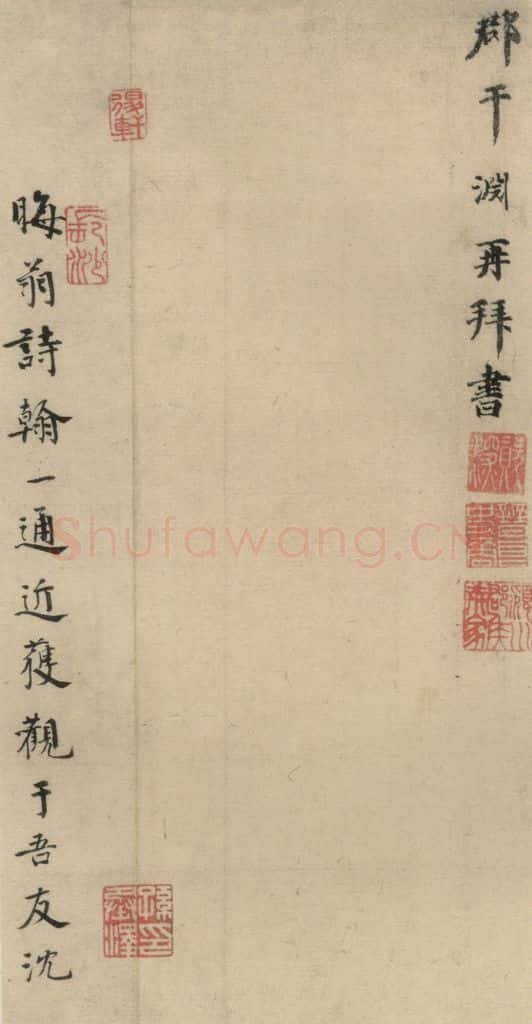 郡干淵再拜書
晦翁詩翰一通近獲觀于吾友沈
長沙
Shufawang.CN